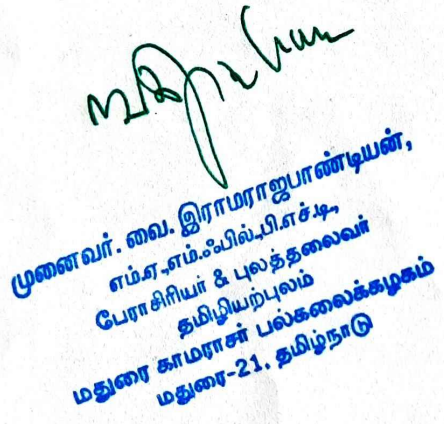 முனைவர். வை. இராமராஜபாண்டியன்,
எம்.ஏ.,எம்.ஃபில்.,பி.எச்.டி.,
பேராசிரியர் & புலத்தலைவர்
தமிழியற்புலம்
மதுரை காமராசர் பல்கலைக்கழகம்
மதுரை-21. தமிழ்நாடு